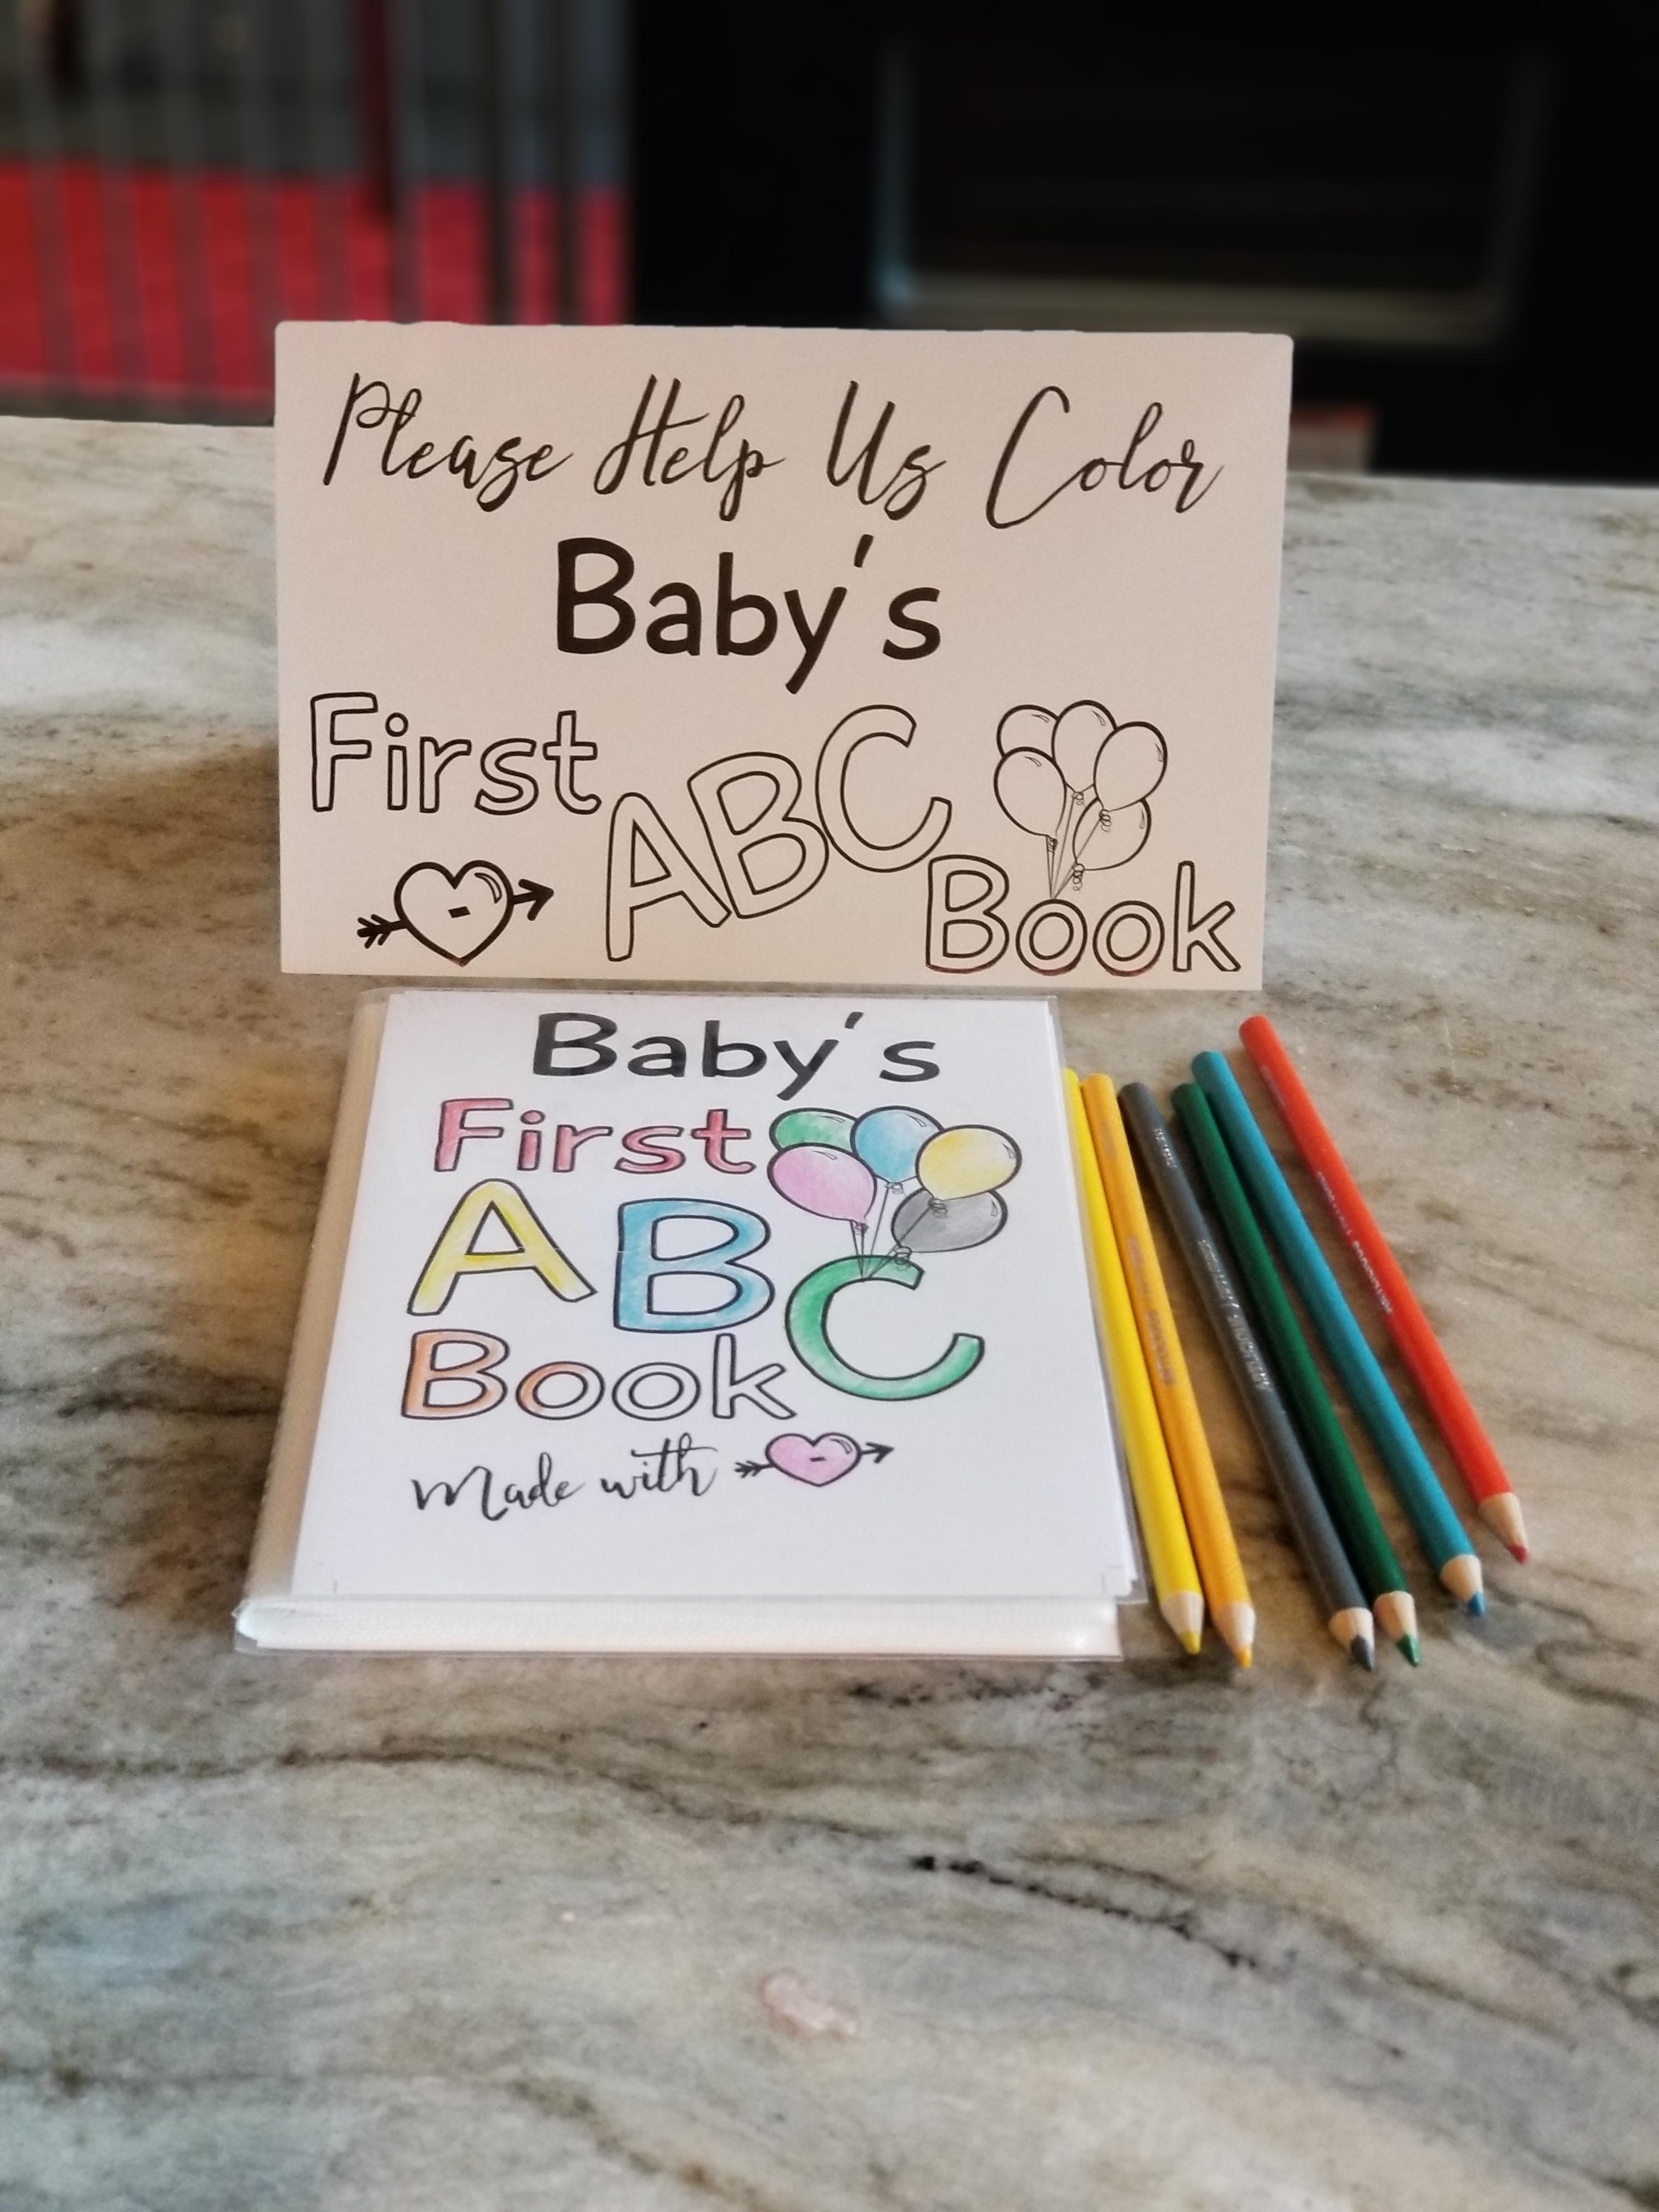 Please Help Us Color
Baby's
First ABC
Book
Baby's
First
ABC
Book
Made with